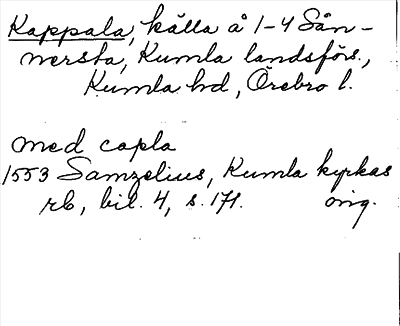 Kappala, källa å 1-4 Sån-
nersta, Kumla landsförs.,
Kumla hd, Örebro l.
med capla
1553 Samzelius, Kumla kyrkas
rb, bil. 4, s. 171. orig.